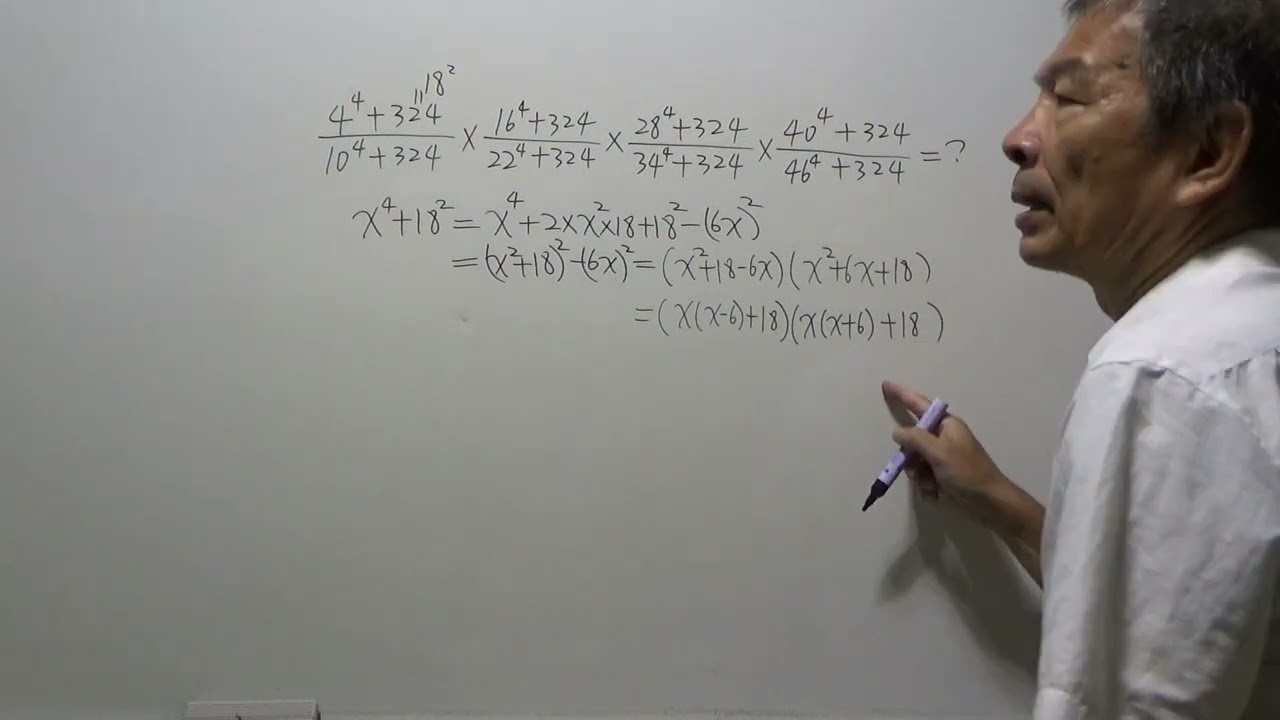 (4⁴+324)/(10⁴+324) × (16⁴+324)/(22⁴+324) × (28⁴+324)/(34⁴+324) × (40⁴+324)/(46⁴+324) = ?
‖18²
x⁴+18² = x⁴+2×x²×18+18²-(6x)²
= (x²+18)²-(6x)² = (x²+18-6x)(x²+6x+18)
= (x(x-6)+18)(x(x+6)+18)